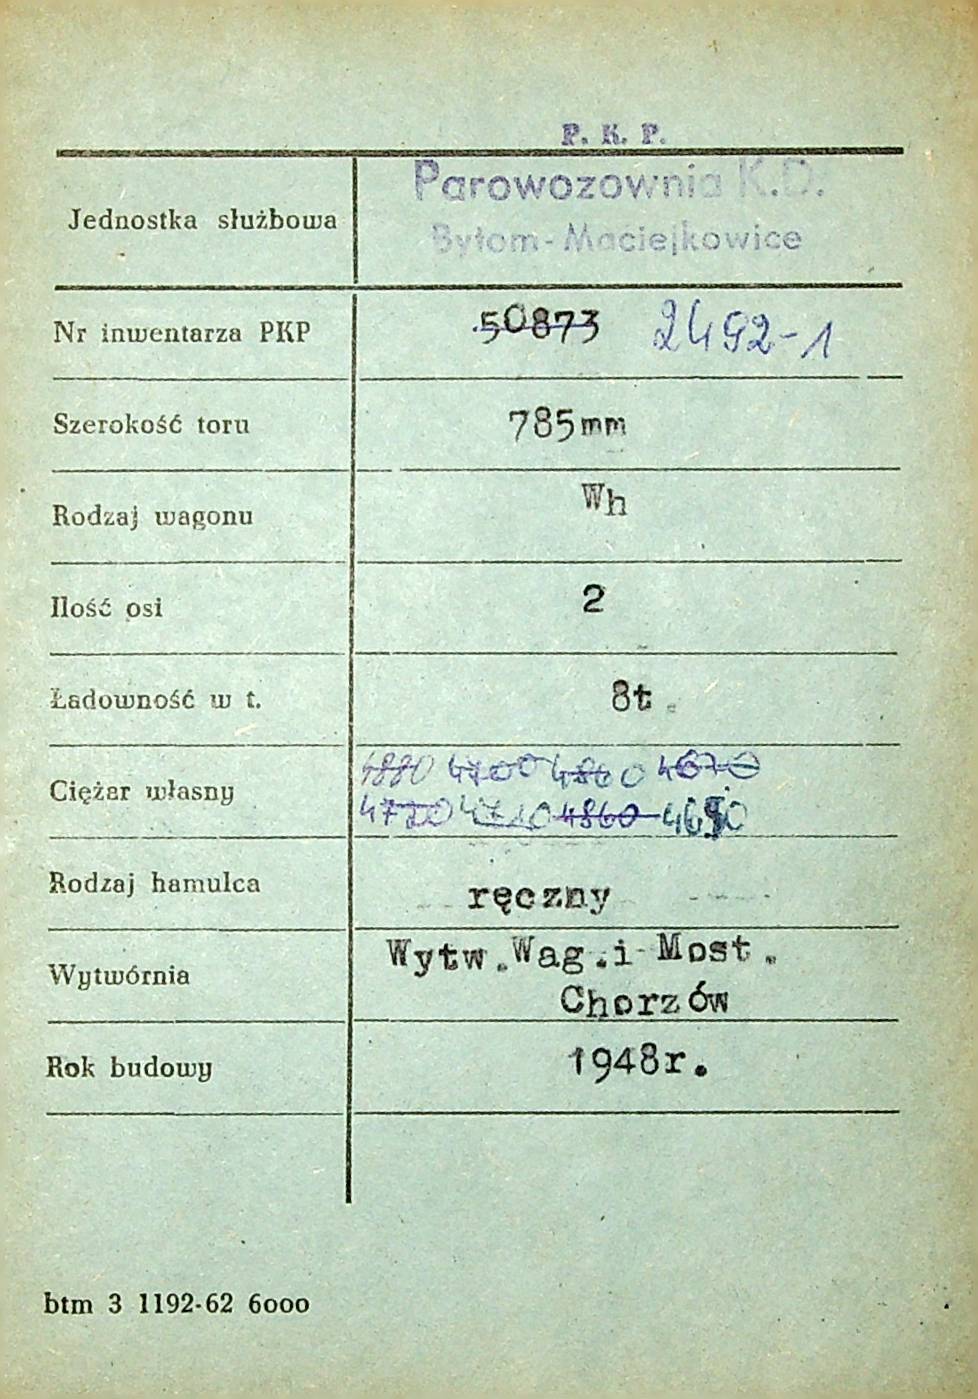 P. K. P.
Jednostka służbowa Parowozownia K.D.
Bytom-Maciejkowice
Nr inwentarza PKP 50873 2492-1
Szerokość toru 785mm
Rodzaj wagonu Wh
Ilość osi 2
Ładowność w t. 8t
Ciężar własny 4880 4700 4860 4670
4720 4710 4860 4690
Rodzaj hamulca ręczny
Wytwórnia Wytw.Wag.i Most.
Chorzów
Rok budowy 1948r.
btm 3 1192-62 6ooo